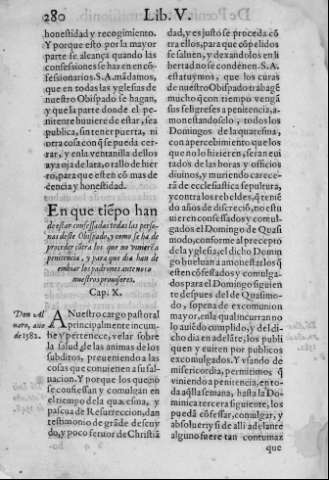 280 Lib. V.
honestidad y recogimiento.
Y porque esto por la mayor
parte se alcança quando las
confessiones se hazen en cõ-
fessionarios. S.A. mãdamos,
que en todas las yglesias de
nuestro Obispado se hagan,
y que la parte donde el pe-
nitente huuiere de estar, sea
publica, sin tener puerta, ni
otra cosa con q̃ se pueda cer-
rar, y en la ventanilla dellos
aya oja de lata, o rallo de hier
ro, para que esten cõ mas de
cencia y honestidad.
En que tiẽpo han
de estar confessadas todas las perso-
nas deste Obispado, y como se ha de
proceder cõtra los que no vinierẽ a
penitencia, y para que dia han de
embiar los padrones ante nos o
nuestros prouisores.
Cap. X.
Don Al
naro, año
de 1582.
A Nuestro cargo pastoral
principalmente incum-
be y pertenece, velar sobre
la salud de las animas de los
subditos, preueniendo a las
cosas que conuienen a su sal-
uacion. Y porque los que no
se confiessan y comulgan en
el tiempo de la quaresma, y
pascua de Resurreccion, dan
testimonio de grãde descuy
do, y poco feruor de Christiã
dad, y es justo se proceda cõ
tra ellos, para que cõpelidos
se saluen, y dexandolos en li
bertad no se condenen. S.A.
estatuymos, que los curas
de nuestro Obispado trabagẽ
mucho q̃ con tiempo vengã
sus feligreses a penitencia, a-
monestandoselo, todos los
Domingos de la quaresma,
con apercebimiento que los
que no lo hizierẽ, seran eui
tados de las horas y officios
diuinos, y muriendo carece-
rã de ecclesiastica sepultura,
y contra los rebeldes, q̃ teniẽ
do años de discreciõ, no estu
uieren confessados y comul-
gados el Domingo de Quasi
modo, conforme al precepto
de la yglesia, el dicho Domin
go bueluan a amonestarlos q̃
esten cõfessados y comulga-
dos para el Domingo siguien
te despues del de Quasimo-
do, sopena de excomunion
mayor, en la qual incurran no
lo auiẽdo cumplido, y del di-
cho dia en adelãte, los publi
quen y euiten por publicos
excomulgados. Y vsando de
misericordia, permitimos q̃
viniendo a penitencia, en to-
da aq̃lla semana, hasta la Do-
minica tercera siguiente, los
puedã cõfessar, comulgar, y
absoluer: y si de alli adelante
alguno fuere tan contumaz
que